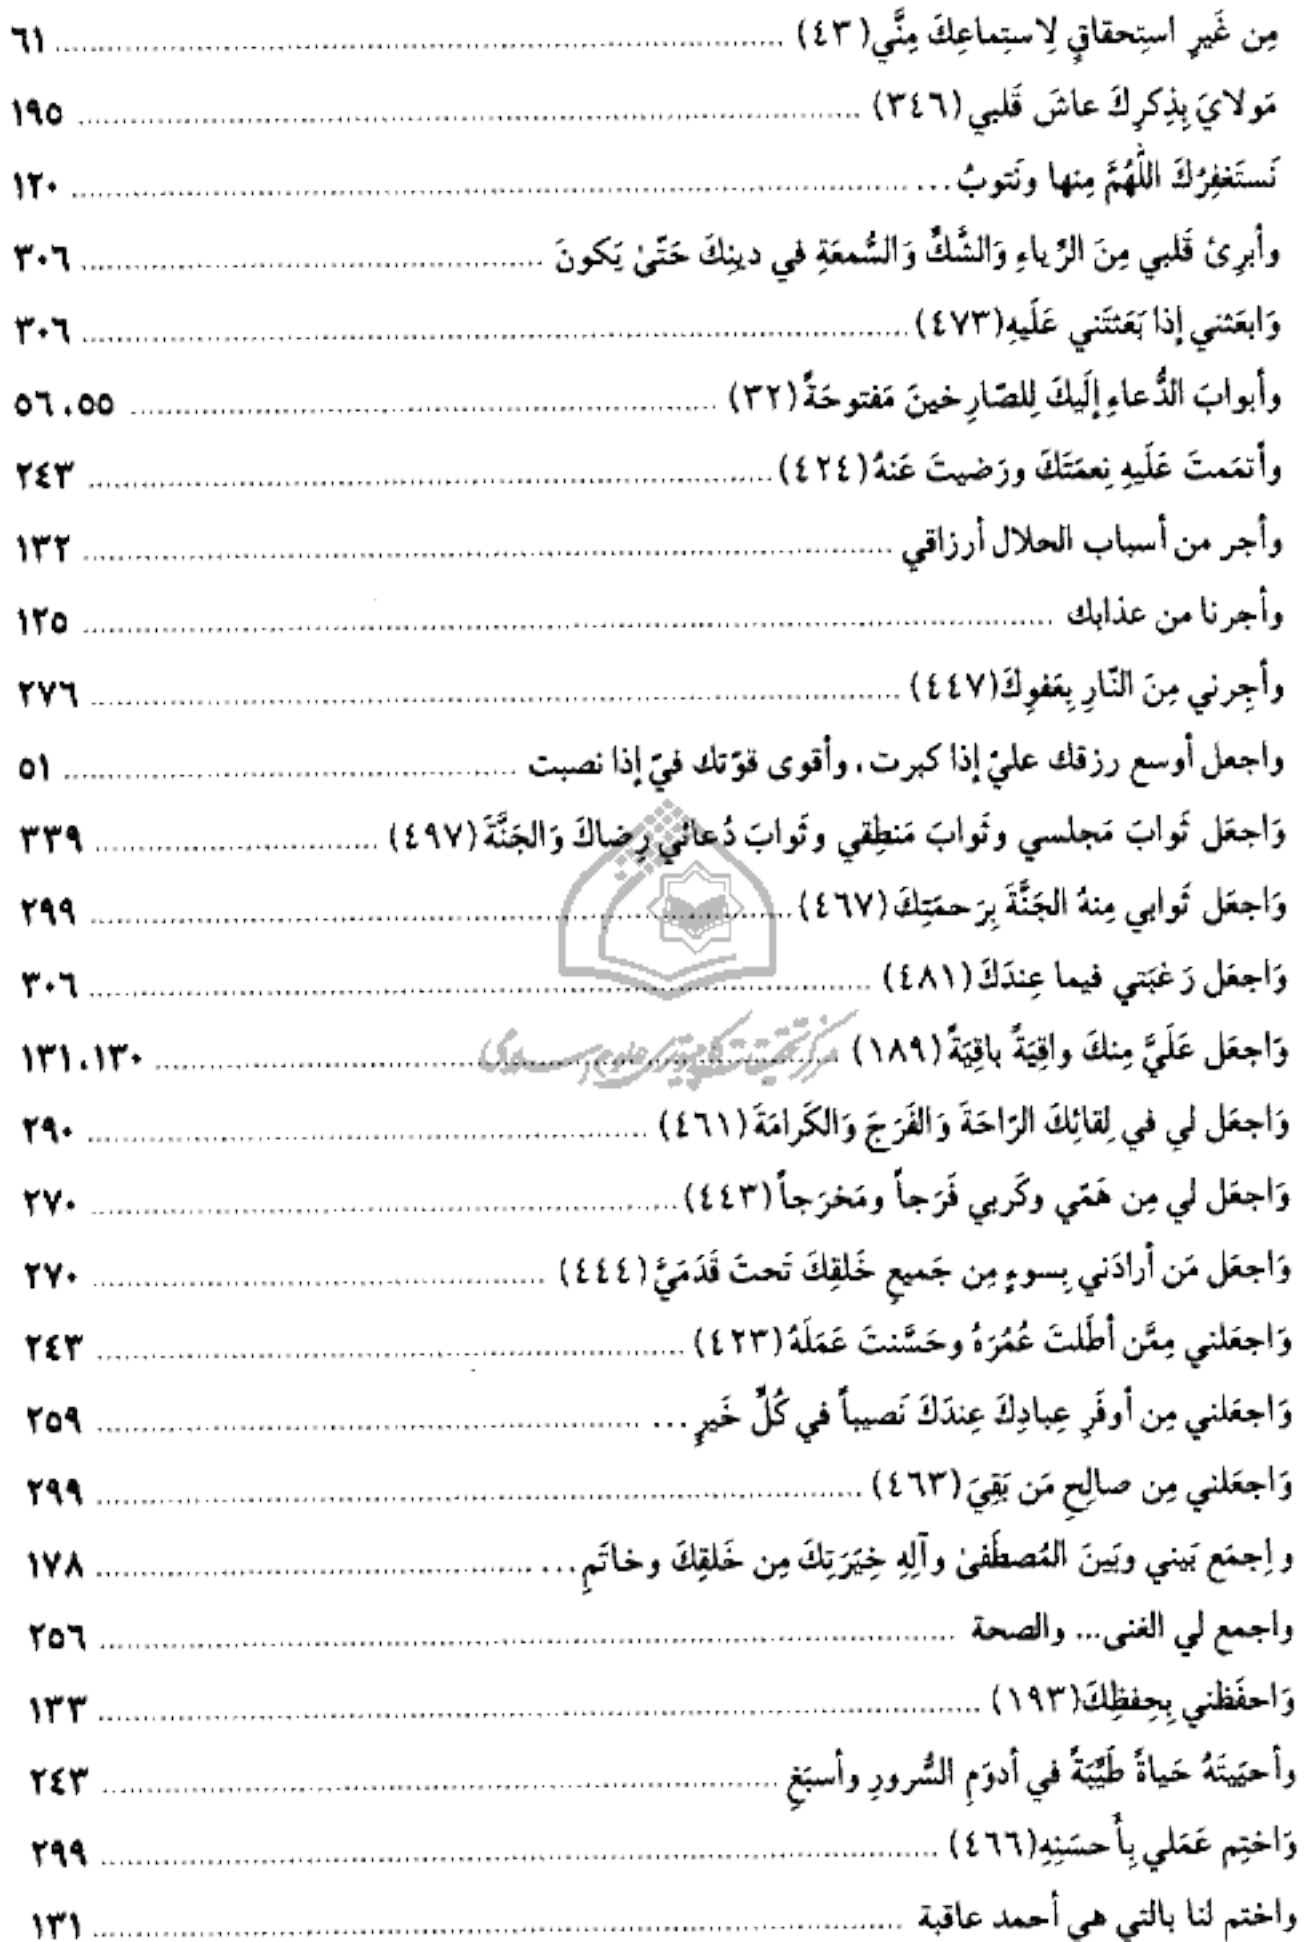 مِن غَيرِ استِحقاقٍ لِاستِماعِكَ مِنّي (٤٣) ........ ٦١
مَولايَ بِذِكرِكَ عاشَ قَلبي (٣٤٦) ........ ١٩٥
نَستَغفِرُكَ اللّٰهُمَّ مِنها ونَتوبُ ... ........ ١٢٠
وأبرِئ قَلبي مِنَ الرِّياءِ وَالشَّكِّ وَالسُّمعَةِ في دينِكَ حَتّىٰ يَكونَ ........ ٣٠٦
وَابعَثني إذا بَعَثتَني عَلَيهِ (٤٧٣) ........ ٣٠٦
وأبوابَ الدُّعاءِ إلَيكَ لِلصّارِخينَ مَفتوحَةً (٣٢) ........ ٥٥، ٥٦
وأتمَمتَ عَلَيهِ نِعمَتَكَ ورَضيتَ عَنهُ (٤٢٤) ........ ٢٤٣
وأجر من أسباب الحلال أرزاقي ........ ١٣٢
وأجرنا من عذابك ........ ١٢٥
وأجِرني مِنَ النّارِ بِعَفوِكَ (٤٤٧) ........ ٢٧٦
واجعل أوسع رزقك عليّ إذا كبرت، وأقوى قوّتك فيّ إذا نصبت ........ ٥١
وَاجعَل ثَوابَ مَجلسي وثَوابَ مَنطِقي وثَوابَ دُعائي رِضاكَ وَالجَنَّةَ (٤٩٧) ........ ٣٣٩
وَاجعَل ثَوابي مِنهُ الجَنَّةَ بِرَحمَتِكَ (٤٦٧) ........ ٢٩٩
وَاجعَل رَغبَتي فيما عِندَكَ (٤٨١) ........ ٣٠٦
وَاجعَل عَلَيَّ مِنكَ واقِيَةً باقِيَةً (١٨٩) ........ ١٣٠، ١٣١
مركز تحقيقات كامپيوتري علوم اسلامي
وَاجعَل لي في لِقائِكَ الرّاحَةَ وَالفَرَجَ وَالكَرامَةَ (٤٦١) ........ ٢٩٠
وَاجعَل لي مِن هَمّي وكَربي فَرَجاً ومَخرَجاً (٤٤٣) ........ ٢٧٠
وَاجعَل مَن أرادَني بِسوءٍ مِن جَميعِ خَلقِكَ تَحتَ قَدَمَيَّ (٤٤٤) ........ ٢٧٠
وَاجعَلني مِمَّن أطَلتَ عُمُرَهُ وحَسَّنتَ عَمَلَهُ (٤٢٣) ........ ٢٤٣
وَاجعَلني مِن أوفَرِ عِبادِكَ عِندَكَ نَصيباً في كُلِّ خَيرٍ ... ........ ٢٥٩
وَاجعَلني مِن صالِحِ مَن بَقِيَ (٤٦٣) ........ ٢٩٩
وإجمَع بَيني وبَينَ المُصطَفىٰ وآلِهِ خِيَرَتِكَ مِن خَلقِكَ وخاتَمِ ... ........ ١٧٨
واجمع لي الغنى... والصحة ........ ٢٥٦
وَاحفَظني بِحِفظِكَ (١٩٣) ........ ١٣٣
وأحيَيتَهُ حَياةً طَيِّبَةً في أدوَمِ السُّرورِ وأسبَغِ ........ ٢٤٣
وَاختِم عَمَلي بِأَحسَنِهِ (٤٦٦) ........ ٢٩٩
واختم لنا بالتي هي أحمد عاقبة ........ ١٣١